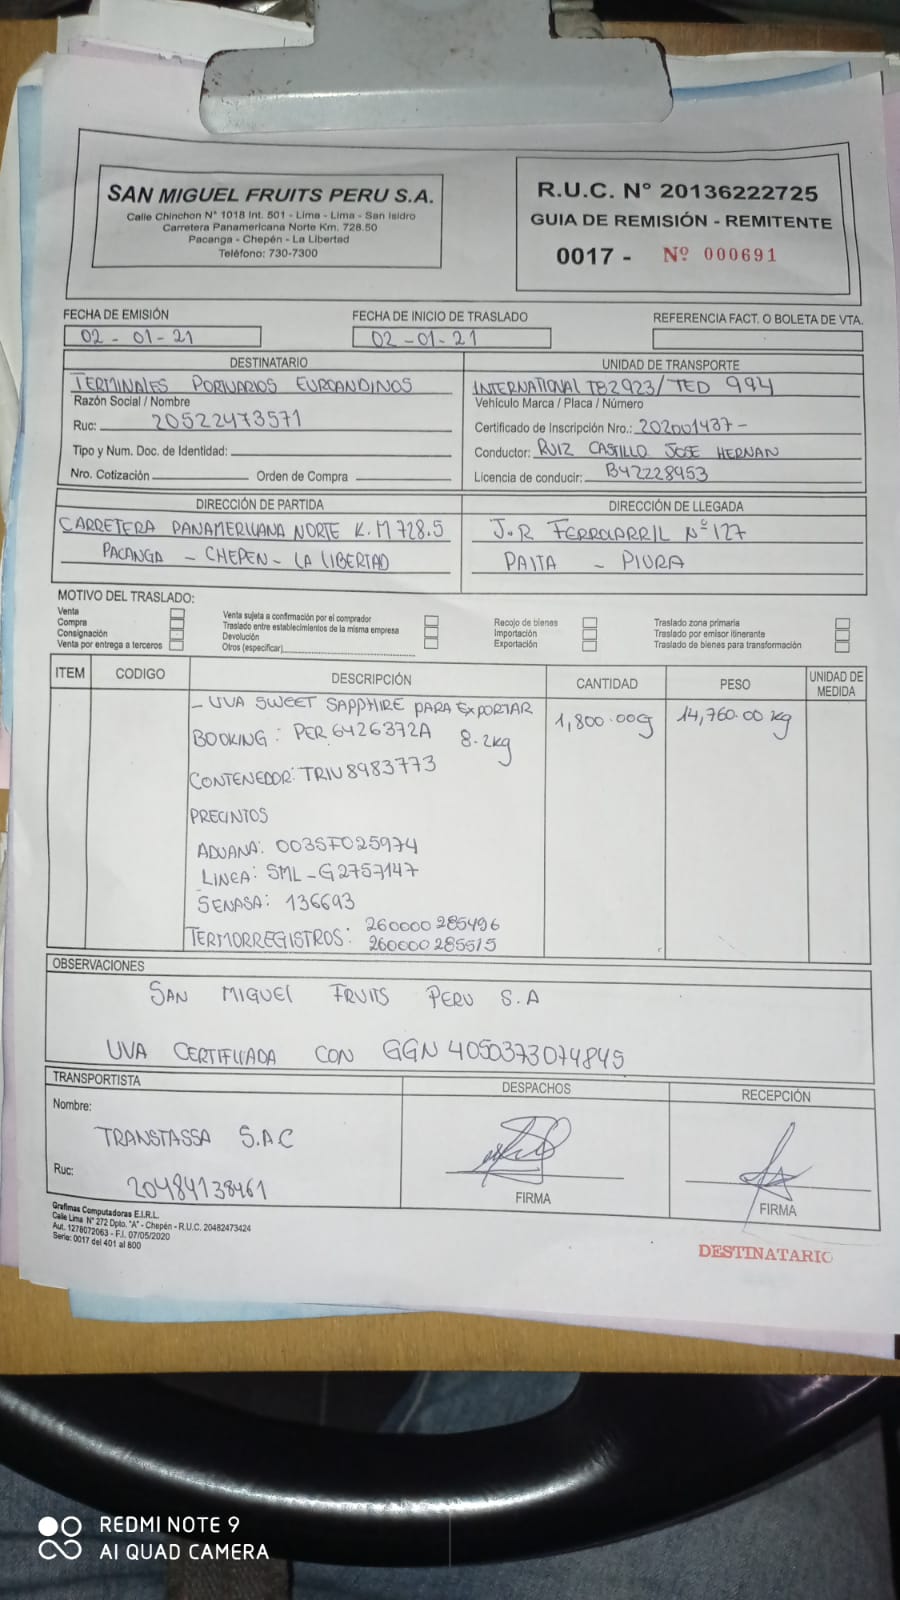 SAN MIGUEL FRUITS PERU S.A.
Calle Chinchon N° 1018 Int. 501 - Lima - Lima - San Isidro
Carretera Panamericana Norte Km. 728.50
Pacanga - Chepén - La Libertad
Teléfono: 730-7300
R.U.C. N° 20136222725
GUIA DE REMISIÓN - REMITENTE
0017 - Nº 000691
FECHA DE EMISIÓN
02 - 01 - 21
FECHA DE INICIO DE TRASLADO
02 - 01 - 21
REFERENCIA FACT. O BOLETA DE VTA.
DESTINATARIO
TERMINALES PORTUARIOS EUROANDINOS
Razón Social / Nombre
Ruc: 20522473571
Tipo y Num. Doc. de Identidad:
Nro. Cotización Orden de Compra
UNIDAD DE TRANSPORTE
INTERNATIONAL TB2923/ TED 994
Vehículo Marca / Placa / Número
Certificado de Inscripción Nro.: 202001437-
Conductor: RUIZ CASTILLO JOSE HERNAN
Licencia de conducir: B42228953
DIRECCIÓN DE PARTIDA
CARRETERA PANAMERICANA NORTE K.M 728.5
PACANGA - CHEPEN - LA LIBERTAD
DIRECCIÓN DE LLEGADA
J.R FERROCARRIL Nº 127
PAITA - PIURA
MOTIVO DEL TRASLADO:
Venta
Compra
Consignación
Venta por entrega a terceros
Venta sujeta a confirmación por el comprador
Traslado entre establecimientos de la misma empresa
Devolución
Otros (especificar)
Recojo de bienes
Importación
Exportación
Traslado zona primaria
Traslado por emisor itinerante
Traslado de bienes para transformación
ITEM CODIGO DESCRIPCIÓN CANTIDAD PESO UNIDAD DE MEDIDA
- UVA SWEET SAPPHIRE PARA EXPORTAR 1,800.00g 14,760.00 kg
BOOKING: PER6426372A 8.2kg
CONTENEDOR: TRIU8983773
PRECINTOS
ADUANA: 003SF025974
LINEA: SML-G2757147
SENASA: 136693
TERMORREGISTROS: 260000285496
260000285515
OBSERVACIONES
SAN MIGUEL FRUITS PERU S.A
UVA CERTIFICADA CON GGN 4050373074845
TRANSPORTISTA
Nombre:
TRANSTASSA S.A.C
Ruc:
20484138461
DESPACHOS
FIRMA
RECEPCIÓN
FIRMA
Grafimas Computadoras E.I.R.L.
Calle Lima N° 272 Dpto. "A" - Chepén - R.U.C. 20482473424
Aut. 1278072063 - F.I. 07/05/2020
Serie: 0017 del 401 al 800
DESTINATARIO
REDMI NOTE 9
AI QUAD CAMERA